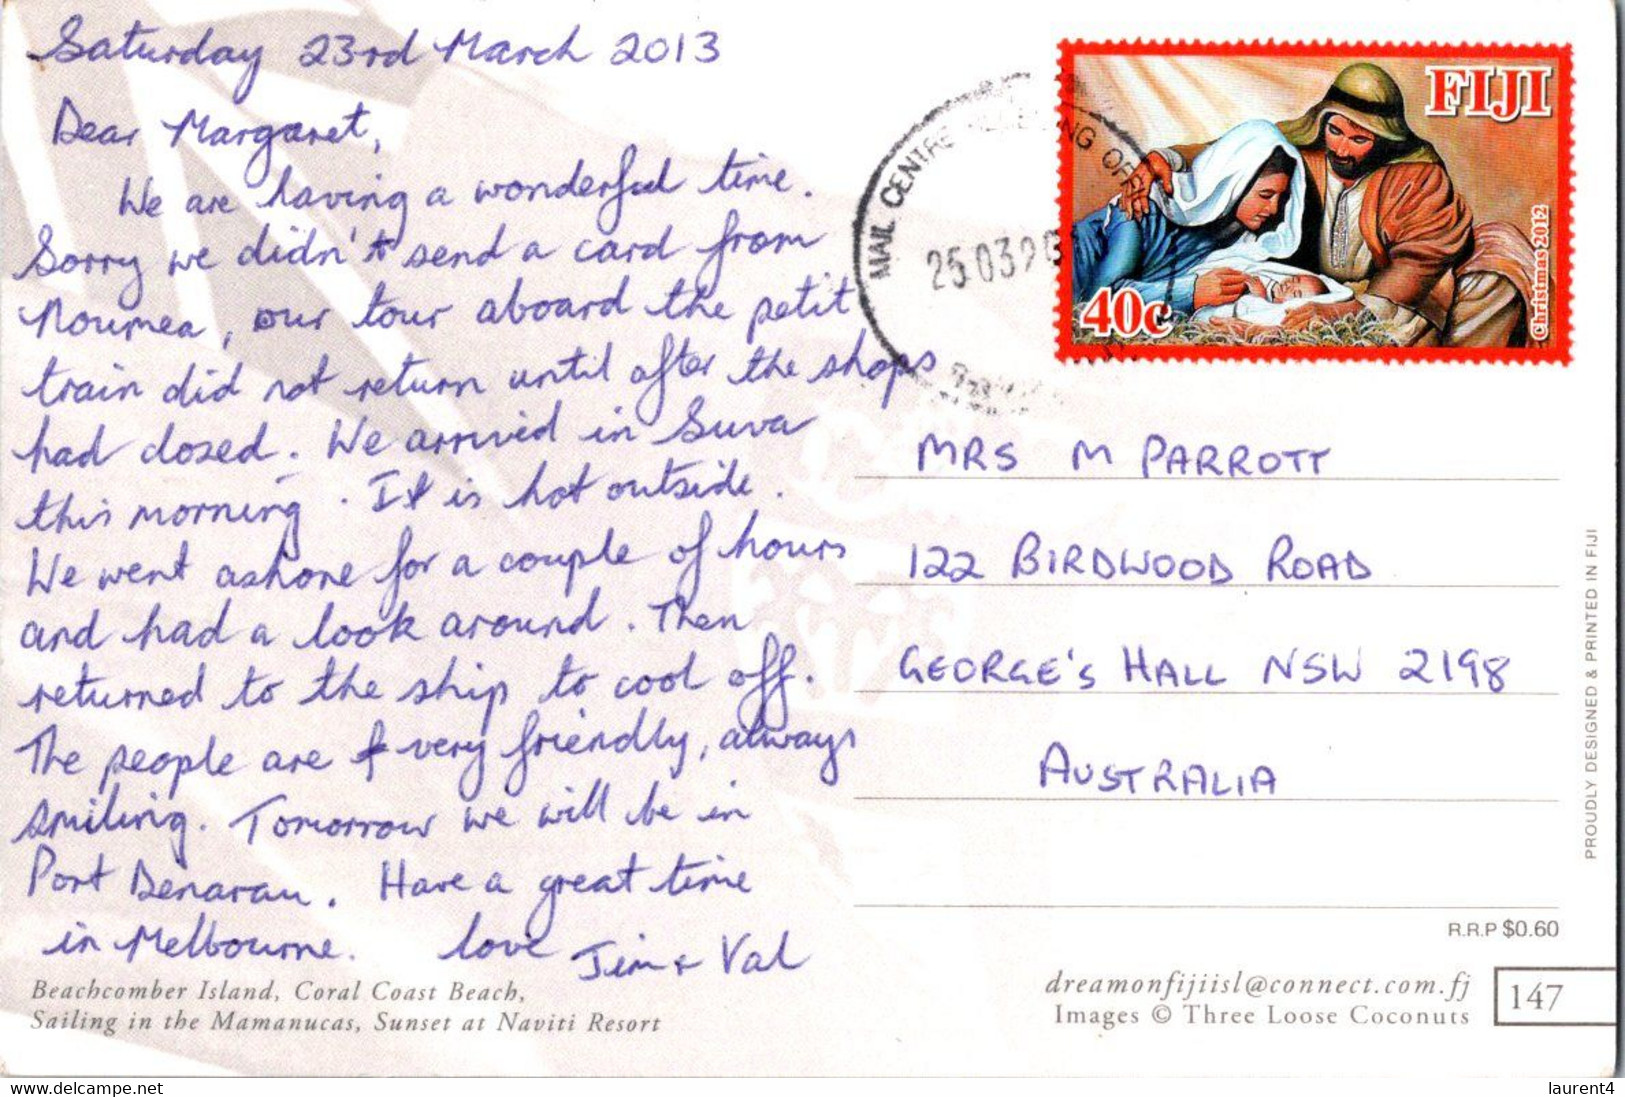 Saturday 23rd March 2013
Dear Margaret,
We are having a wonderful time.
Sorry we didn't send a card from
Noumea, our tour aboard the petit
train did not return until after the shops
had closed. We arrived in Suva
this morning. It is hot outside.
We went ashore for a couple of hours
and had a look around. Then
returned to the ship to cool off.
The people are very friendly, always
smiling. Tomorrow we will be in
Port Denarau. Have a great time
in Melbourne. love Jim & Val
Beachcomber Island, Coral Coast Beach,
Sailing in the Mamanucas, Sunset at Naviti Resort
FIJI
40c
Christmas 2012
MAIL CENTRE
25 03 20
MRS M PARROTT
122 BIRDWOOD ROAD
GEORGE'S HALL NSW 2198
AUSTRALIA
PROUDLY DESIGNED & PRINTED IN FIJI
R.R.P $0.60
dreamonfijiisl@connect.com.fj
Images © Three Loose Coconuts
147
delcampe.net
laurent4